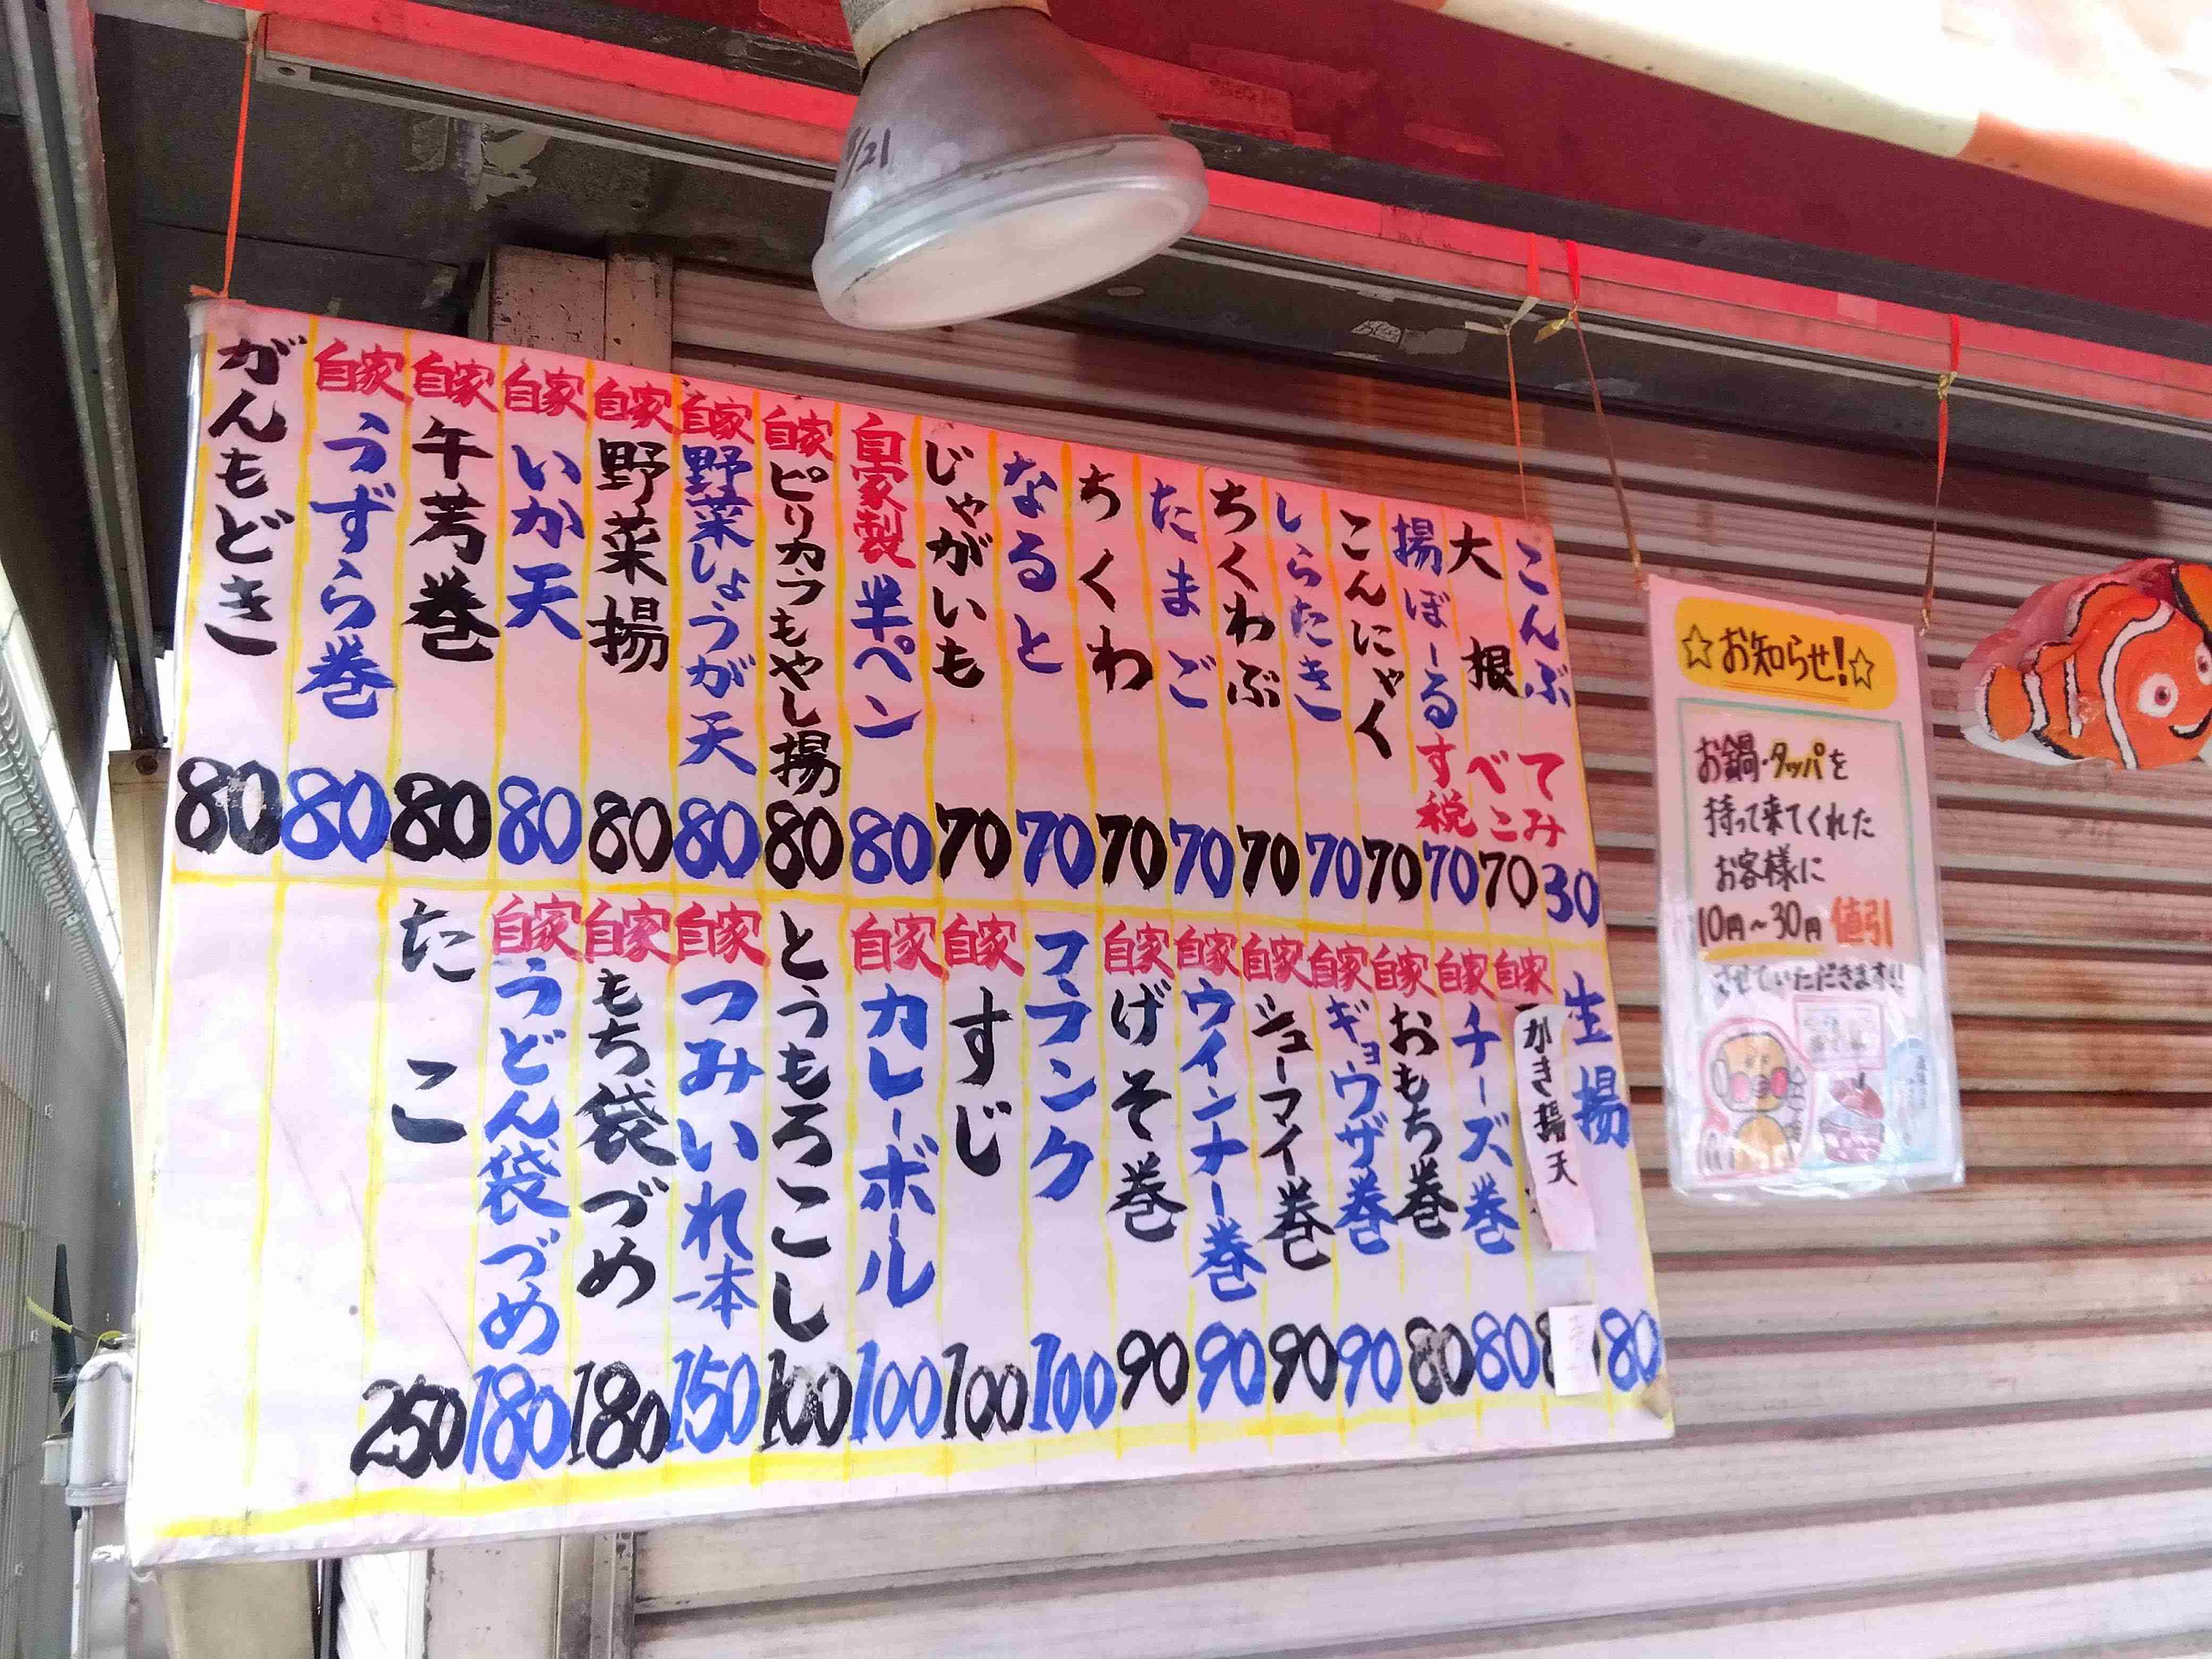 こんぶ 30
大根 70
揚ぼーる 70
こんにゃく 70
しらたき 70
ちくわぶ 70
たまご 70
ちくわ 70
なると 70
じゃがいも 70
自家製 半ペン 80
自家 ピリカラもやし揚 80
自家 野菜しょうが天 80
自家 野菜揚 80
自家 いか天 80
自家 午芳巻 80
自家 うずら巻 80
がんもどき 80
すべて
税こみ
生揚 80
自家 かき揚天
自家 チーズ巻 80
自家 おもち巻 80
自家 ギョウザ巻 90
自家 シューマイ巻 90
自家 ウインナー巻 90
自家 げそ巻 90
フランク 100
自家 すじ 100
自家 カレーボール 100
とうもろこし 100
自家 つみいれ一本 150
自家 もち袋づめ 180
自家 うどん袋づめ 180
たこ 250
☆お知らせ!☆
お鍋・タッパを
持って来てくれた
お客様に
10円~30円 値引
させていただきます!!
/21